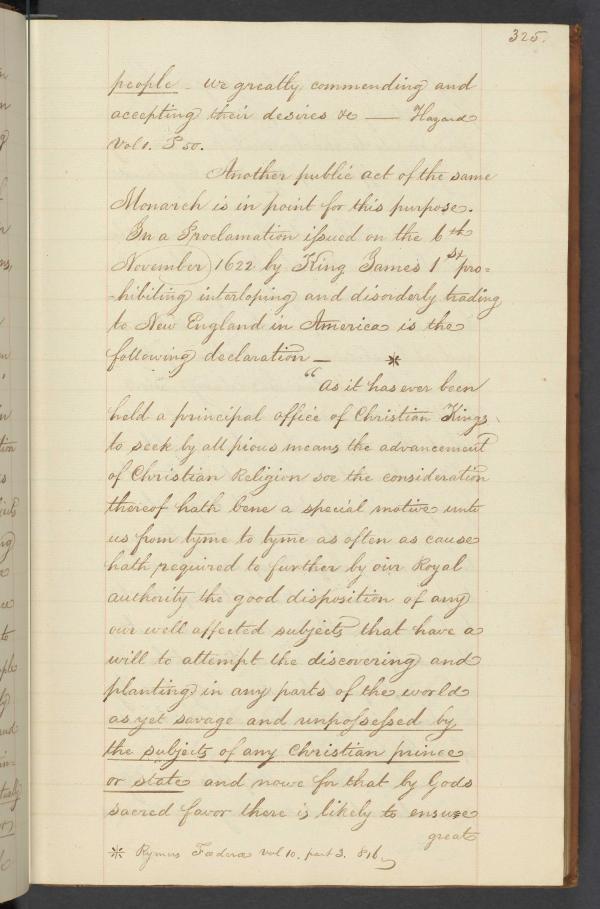 325.
people - we greatly commending and
accepting their desires &c — Hazard
Vol 1. P 50.
Another public act of the same
Monarch is in point for this purpose.
In a Proclamation issued on the 6th
November 1622 by King James 1st pro=
-hibiting interloping and disorderly trading
to New England in America is the
following declaration — *
"As it has ever been
held a principal office of Christian Kings
to seek by all pious means the advancement
of Christian Religion soe the consideration
thereof hath bene a special motive unto
us from tyme to tyme as often as cause
hath required to further by our Royal
authority the good disposition of any
our well affected subjects that have a
will to attempt the discovering and
planting in any parts of the world
as yet savage and unpossessed by
the subjects of any Christian prince
or state and nowe for that by Gods
sacred favor there is likely to ensure
great
* Rymers Fœdera vol 10. part 3. 816